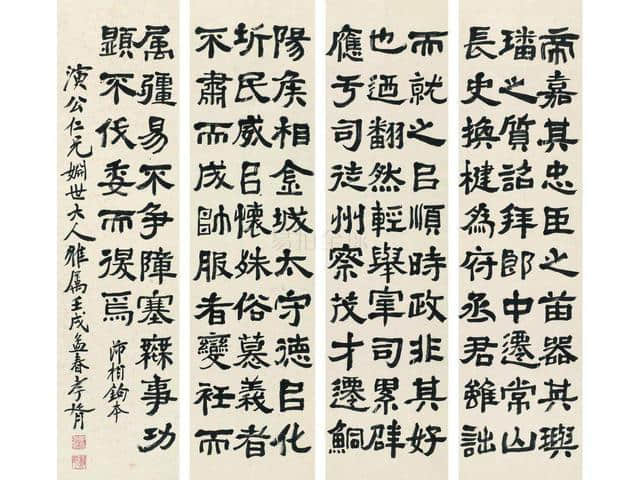 帝嘉其忠臣之苗器其璵
璠之質詔拜郎中遷常山
長史換楗為府丞君雖詘
而就之㠯順時政非其好
也迺翻然輕舉宰司累辟
應亏司徒州察茂才遷鮦
陽侯相金城太守德㠯化
圻民威㠯懷殊俗慕義者
不肅而成帥服者變衽而
属疆易不争障塞無事功
顕不伐委而復焉
沛相鉤本
演公仁兄姻世大人雅属壬戌孟春孝胥